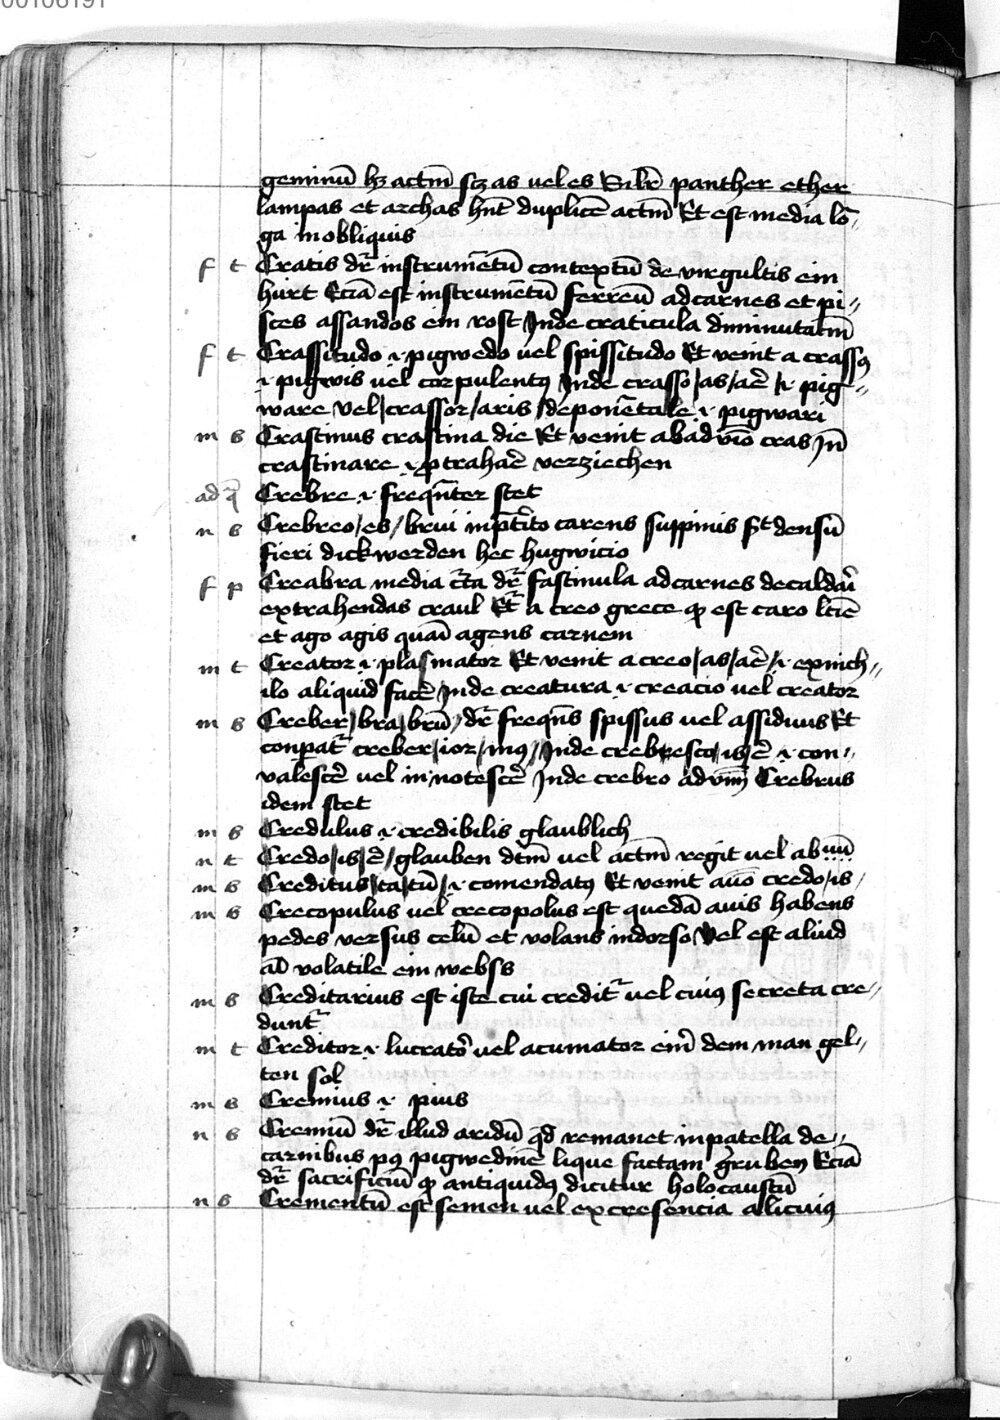 00106191
geminū hꝫ actm̄ scꝫ as uel es Silr̄ panther ether
lampas et archas hn̄t duplicē actm̄ Et est media lō⸗
ga in obliquis
f t Cratis dr̄ instrumētū contextū de virgultis ein
hürt Eciā est instrumētū ferreū ad carnes et pi⸗
sces assandos ein rost Inde craticula diminutiuū
f t Crassitudo .i. pigwedo uel spissitudo Et venit a crassꝰ
.i. pigwis uel corpulentꝰ Inde crasso/as/aē .i. pig⸗
ware vel/crassor/aris/deponētale .i. pigwari
m s Crastinus crastina die Et venit ab aduīo cras In̄
crastinare .i. ꝓtrahaē verziechen
ad q̄ Crebre .i. freqn̄ter stet
n s Crebreo/es/brui in p̄tito carens suppinis st densū
fieri dick werden hec hugwicio
f p Creabra media cr̄ta dr̄ fascinula ad carnes de caldaī
extrahendas craul Et̄ a creo grece ꝙ est caro lcīe
et ago agis quāi agens carnem
m t Creator .i. plasmator Et venit a creo/as/aē/.i. ex nich⸗
ilo aliquid facē Inde creatura .i. creacio uel creator
m s Creber/bra/brū/dr̄ freqn̄s spissus uel assiduus Et
conpat̄ creber/ior/imꝰ/Inde crebresco/is/ē .i. con⸗
valescē uel innotescē Inde crebro aduīm Crebrus
idem stet
m s Credulus .i. credibilis glaublich
n t Credo/is/ē/glauben dtm̄ uel actm̄ regit uel abuū
m s Creditus/ta/tū/.i. comendatꝰ Et venit a uō credo/is/
m s Crecopulus uel crecopolus est quedā auis habens
pedes versus celū et volans in dorso Vel est aliud
aīl volatile ein webss
m s Creditarius est iste cui credit̄ uel cuiꝰ secreta cre⸗
dunt̄
m t Creditor .i. lucratoꝛ uel acumator eim̄ dem man gel⸗
ten sol
m s Cremius .i. pius
n s Cremiū dr̄ illud aridū qd̄ remanet in patella de⸗
carnibus pꝰ pigwedinē lique factam gruben Eciā
dr̄ sacrificiū ꝙ antiquidꝰ dicitur holocaustū
n s Crementū est semen uel excrescencia alicuiꝰ